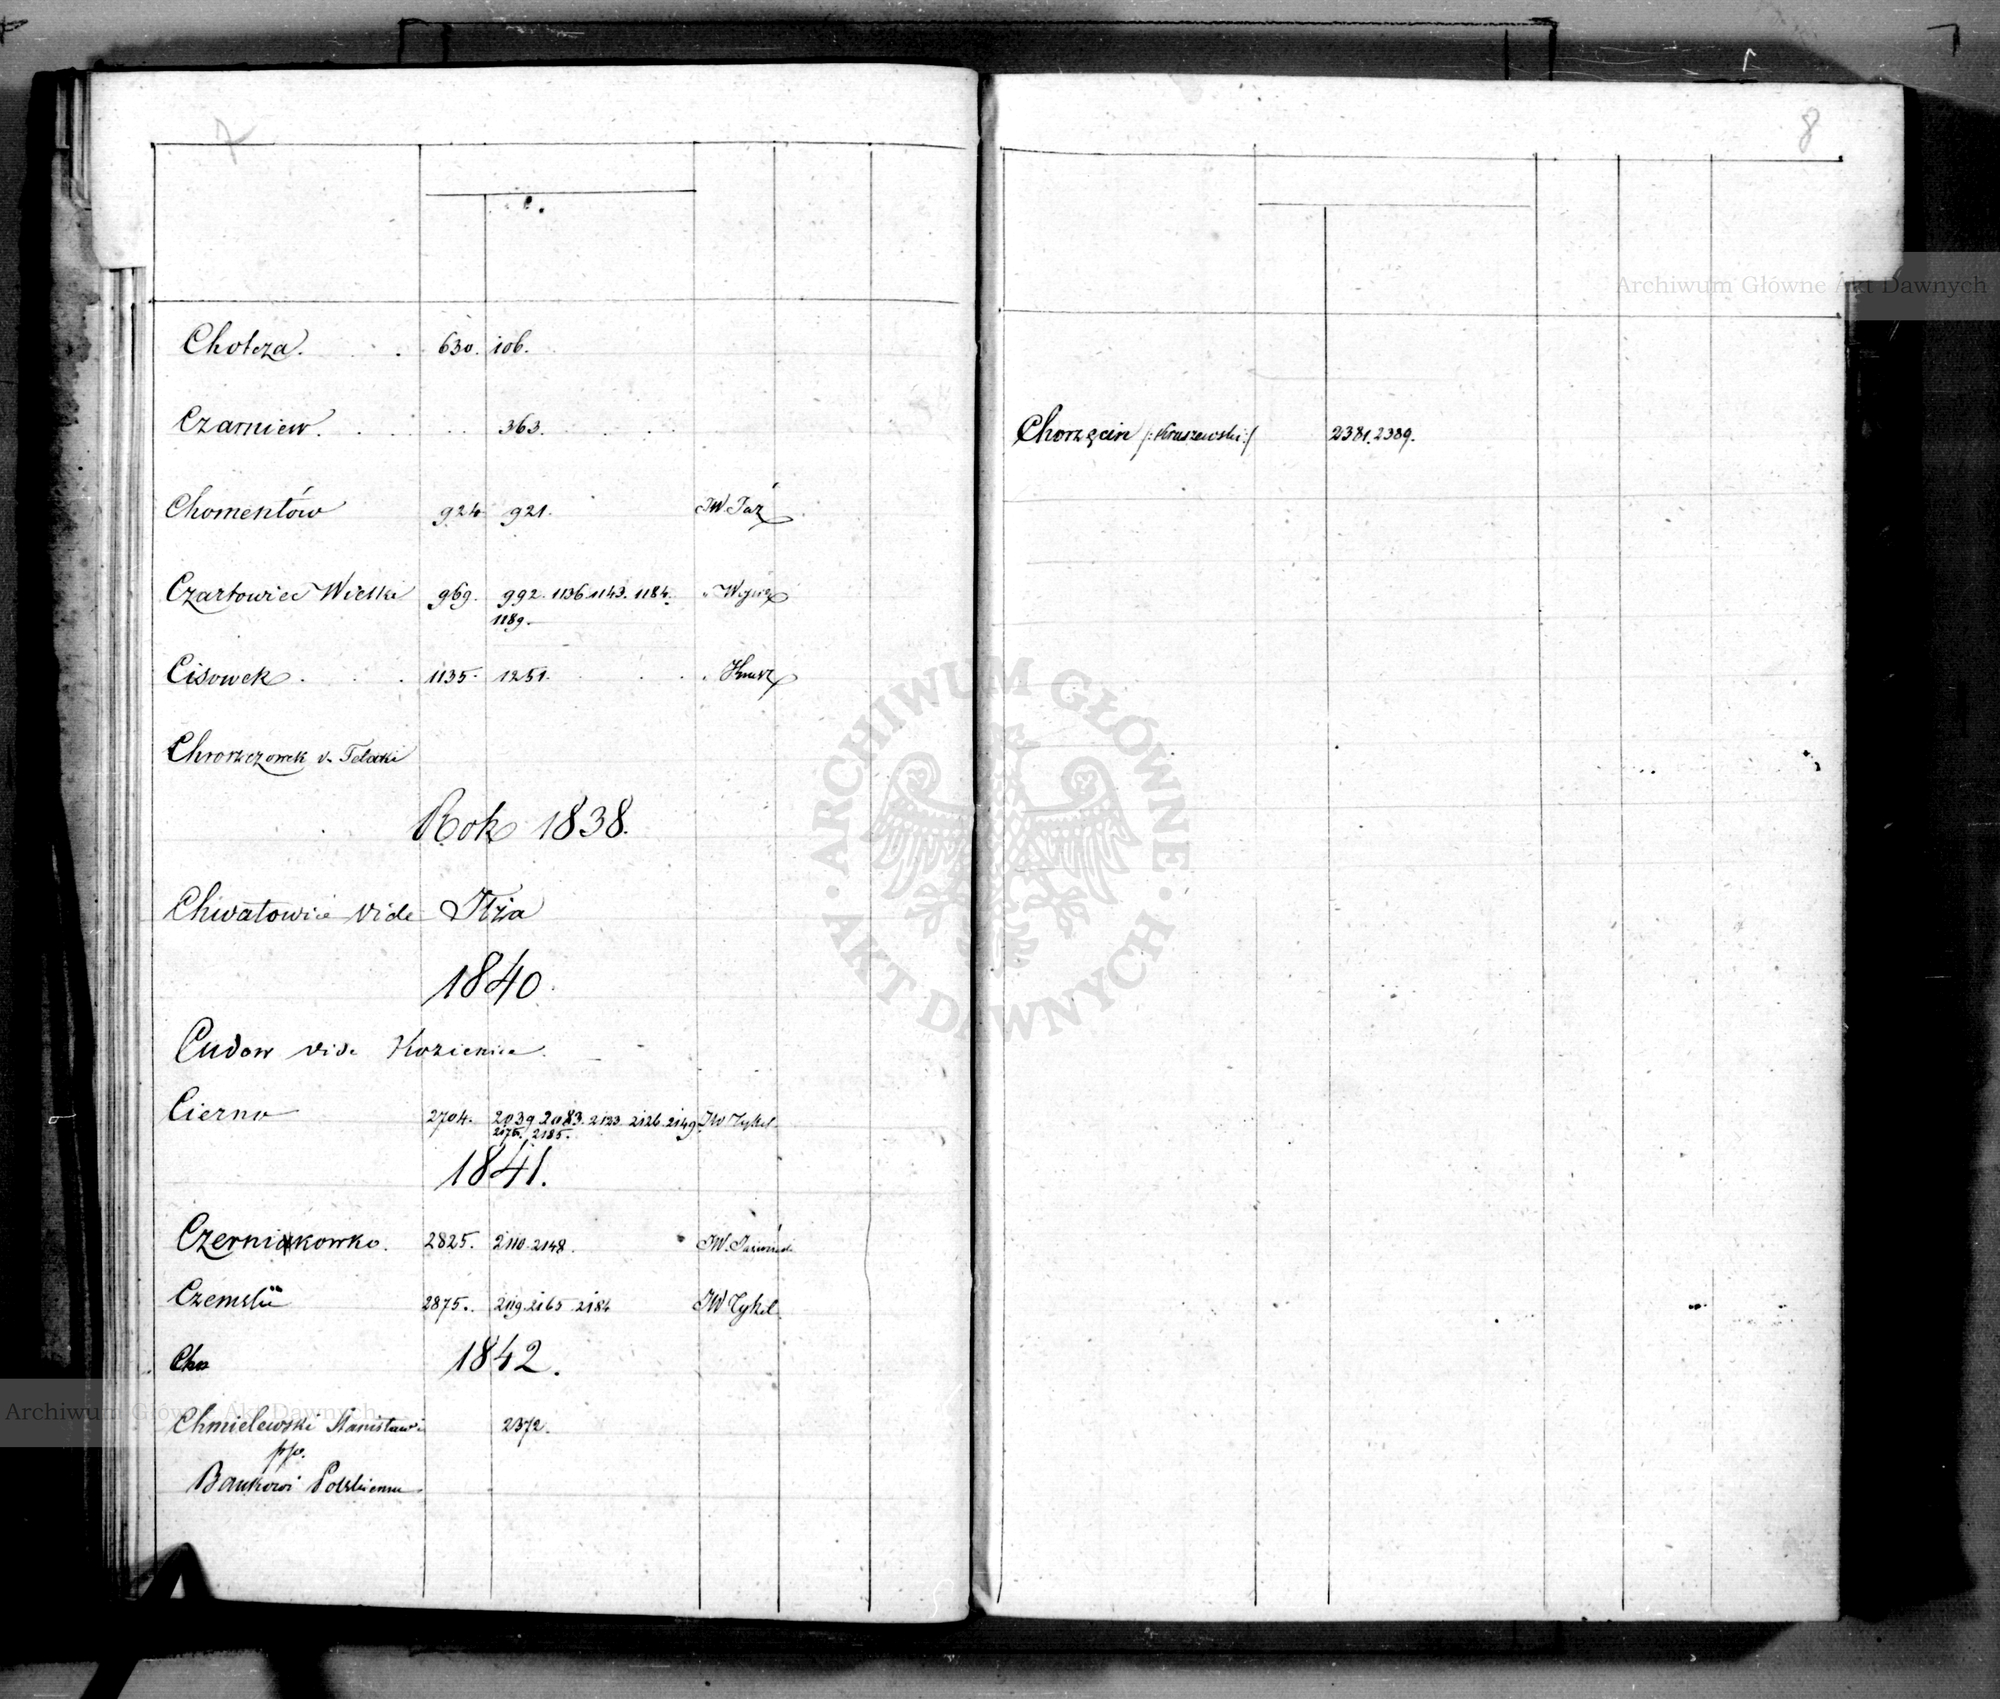 7
Chotcza. 630. 106.
Czarniew. 363.
Chomentów 924 921. JW. Jaź
Czartowiec Wielki 969. 992. 1136. 1143. 1184.
1189.
Cisowek 1135. 1251.
Chroszczowek v.
Rok 1838.
Chwałowice vide Iłża
1840.
Cudow vide Kozienice.
Cierno 2704. 2039 2083. 2123. 2126. 2149. JW Tykel
2175. 2185.
1841.
Czerniakowko. 2825. 2110. 2148. JW.
Czemskie 2875. 2119. 2165 2184 JW Tykel.
Cho 1842.
Chmielewski Stanisław 2372.
ppo.
Bankowi Polskiemu
8
Chorzęcin /:Kruszewski:/ 2381. 2389.
Archiwum Główne Akt Dawnych
ARCHIWUM GŁÓWNE · AKT DAWNYCH ·
Archiwum Główne Akt Dawnych